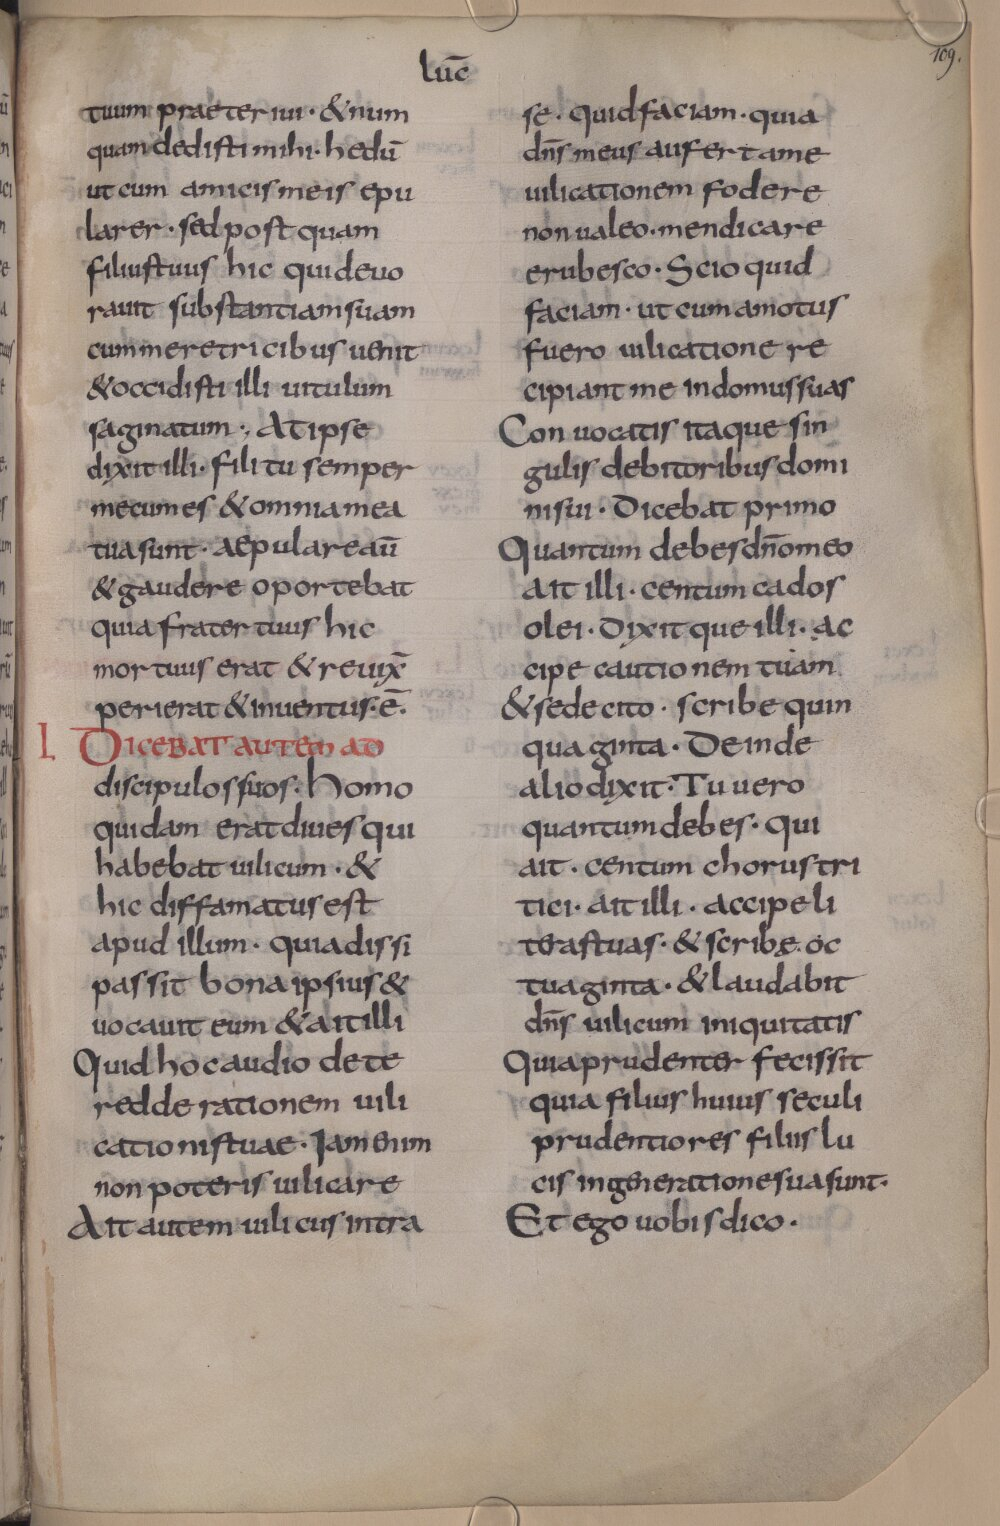 luc̄
109.
tuum praeteriui · & num
quam dedisti mihi · hedū
ut cum amicis meis epu
larer · sed post quam
filius tuus hic qui deuo
rauit substantiam suam
cum meretricibus uenit
& occidisti illi uitulum
saginatum · At ipse
dixit illi · fili tu semper
mecum es & omnia mea
tua sunt · aepulare aū
& gaudere oportebat
quia frater tuus hic
mortuus erat & reuix̄
perierat & inuentus · ē ·
l DICEBAT AUTEM AD
discipulos suos · homo
quidam erat diues qui
habebat uilicum · &
hic diffamatus est
apud illum · quia dissi
passit bona ipsius &
uocauit eum & ait illi
Quid hoc audio de te
redde rationem uili
cationis tuae · Iam enim
non poteris uilicare
Ait autem uilicus intra
se · quid faciam · quia
dn̄s meus aufert a me
uilicationem fodere
non ualeo · mendicare
erubesco · Scio quid
faciam · ut cum amotus
fuero uilicatione re
cipiant me in domus suas
Con uocatis itaque sin
gulis debitoribus domi
ni sui · Dicebat primo
Quantum debes dn̄o meo
ait illi · centum cados
olei · Dixit que illi · ac
cipe cautionem tuam
& sede cito · scribe quin
quaginta · Deinde
alio dixit · Tu uero
quantum debes · Qui
ait · centum chorus tri
tici · ait illi · accipe li
teras tuas · & scribe oc
tuaginta · & laudabit
dn̄s uilicum iniquitatis
Quia prudenter fecissit
quia filius huius seculi
prudentiores filiis lu
cis in generatione sua sunt ·
Et ego uobis dico ·